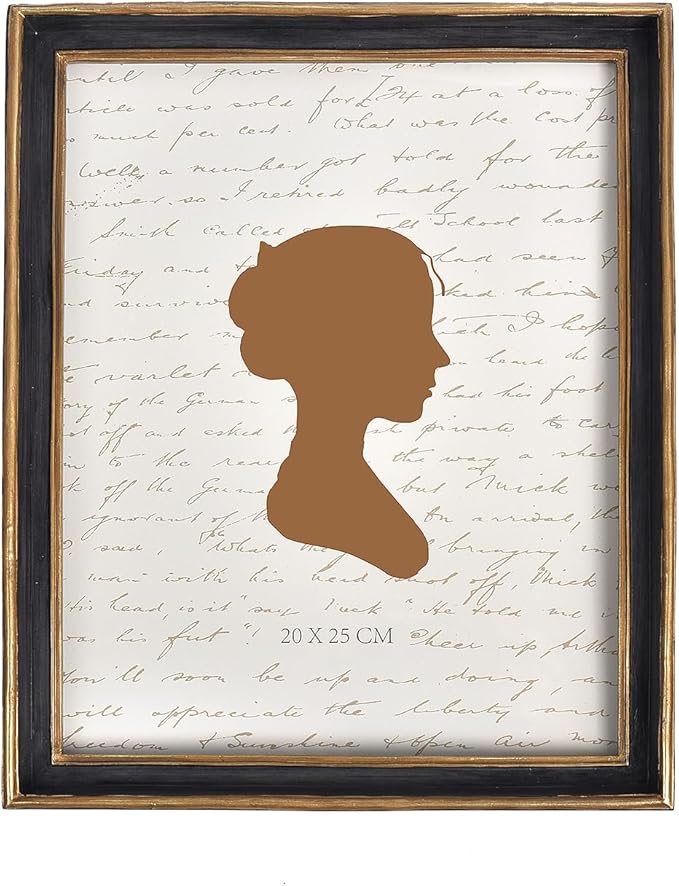 until I gave them one
article was sold for £24 at a loss of
much per cent. What was the cost pr
Well, a number got told for the
answer, so I retired badly wounde
Smith called at School last
Friday and had seen
and surviv ked him
remember which I hope
the varlet heard the
ory of the German had his foot
ot off and asked private to car
in to the rear the way a shel
k off the German but Mick we
ignorant of the On arrival, the
, said, "Whats the bringing in
man with his head shot off, Mick
His head, is it" say Tuck" He told me
was his fut"! Cheer up Arthu
20 X 25 CM
You'll soon be up and doing, an
will appreciate the liberty and
freedom & Sunshine & open air mor